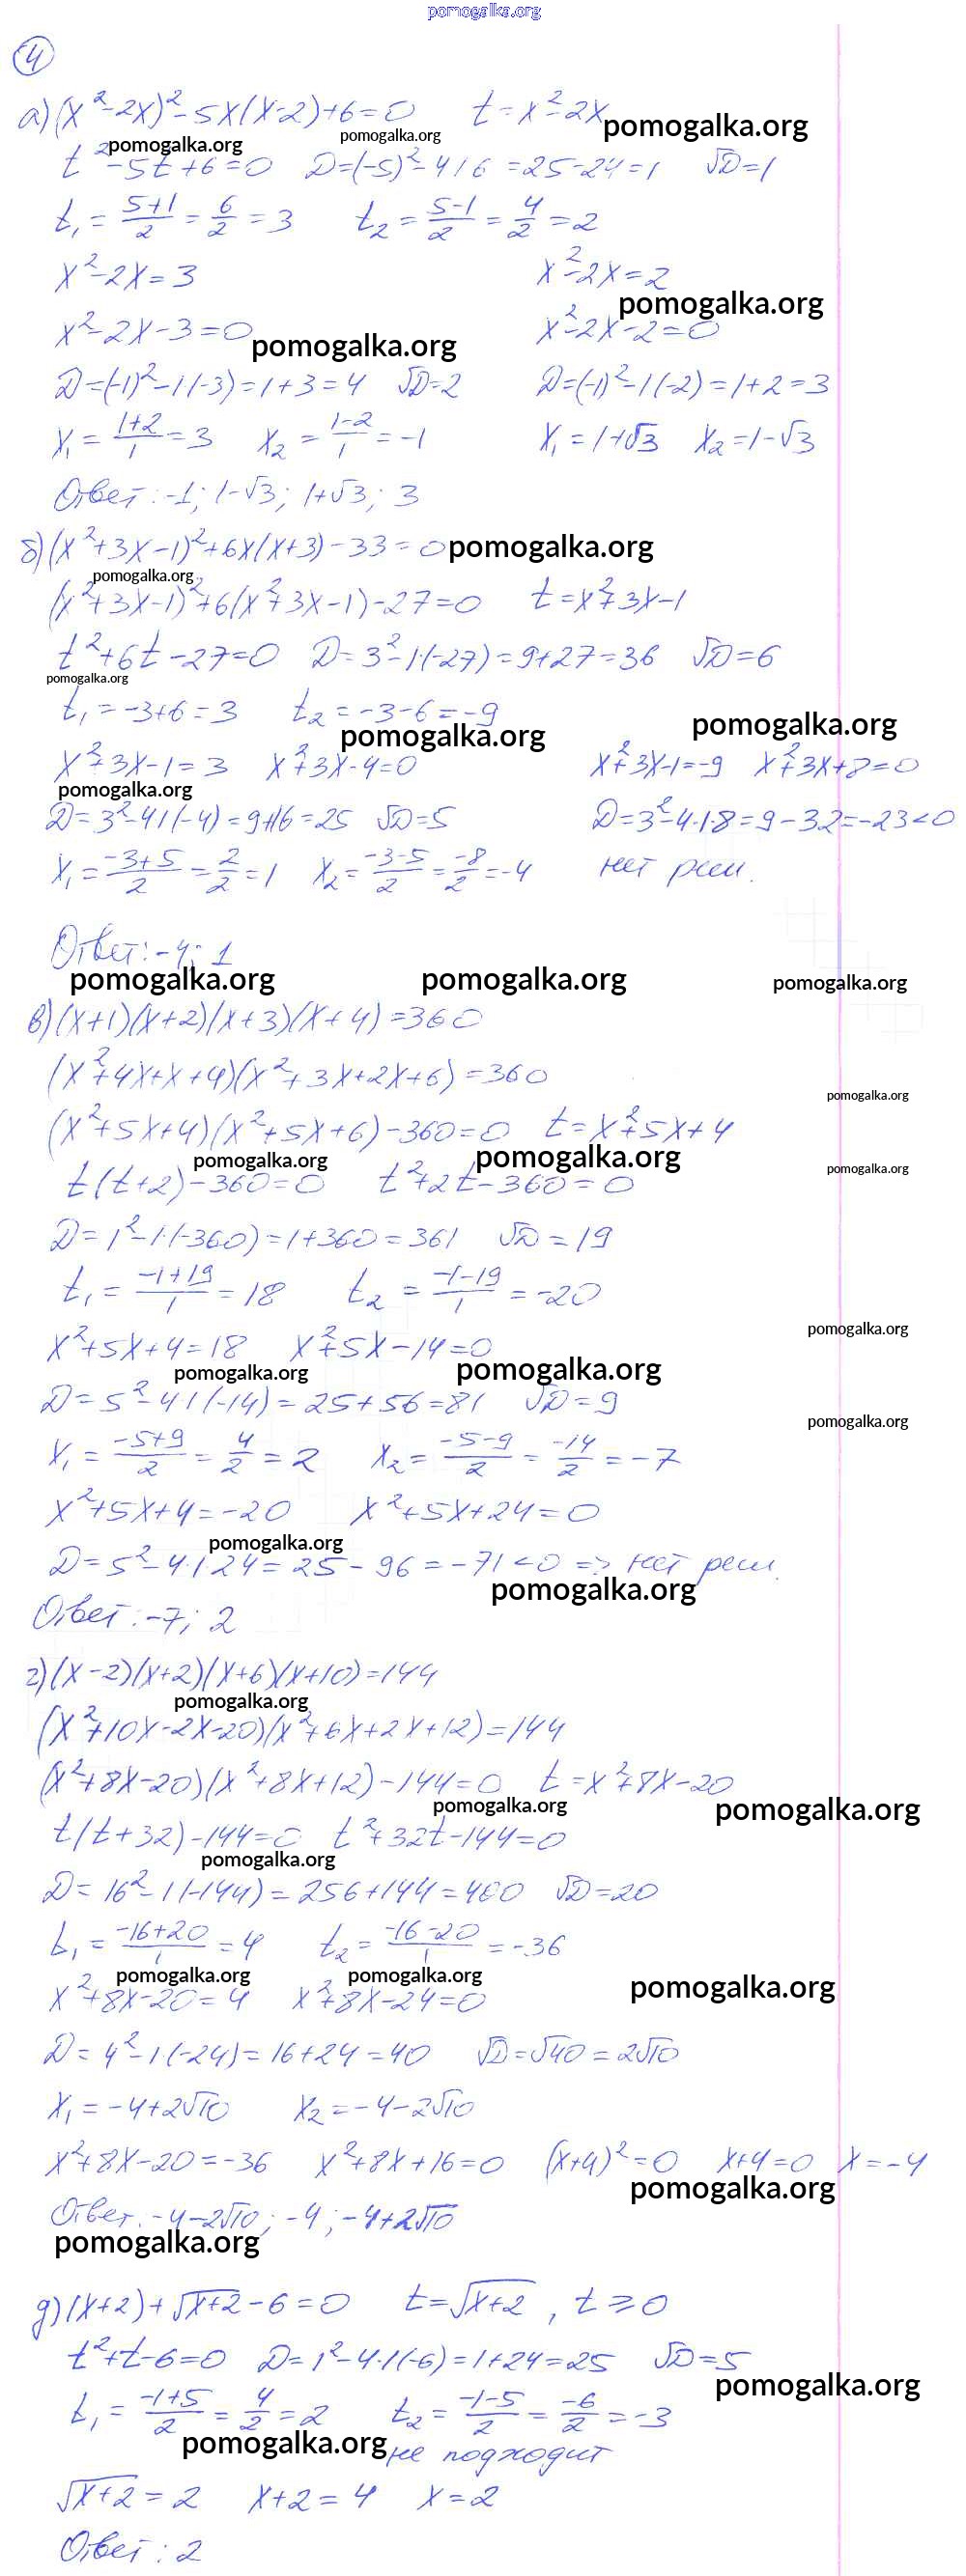 pomogalka.org
4
а) (x²-2x)²-5x(x-2)+6=0 t=x²-2x
pomogalka.org pomogalka.org pomogalka.org
t²-5t+6=0 D=(-5)²-4·1·6=25-24=1 √D=1
t₁=(5+1)/2=6/2=3 t₂=(5-1)/2=4/2=2
x²-2x=3 x²-2x=2
pomogalka.org
x²-2x-3=0 x²-2x-2=0
pomogalka.org
D=(-1)²-1·(-3)=1+3=4 √D=2 D=(-1)²-1·(-2)=1+2=3
x₁=(1+2)/1=3 x₂=(1-2)/1=-1 x₁=1+√3 x₂=1-√3
Ответ: -1; 1-√3; 1+√3; 3
б) (x²+3x-1)²+6x(x+3)-33=0 pomogalka.org
pomogalka.org
(x²+3x-1)²+6(x²+3x-1)-27=0 t=x²+3x-1
t²+6t-27=0 D=3²-1·(-27)=9+27=36 √D=6
pomogalka.org
t₁=-3+6=3 t₂=-3-6=-9
pomogalka.org pomogalka.org
x²+3x-1=3 x²+3x-4=0 x²+3x-1=-9 x²+3x+8=0
pomogalka.org
D=3²-4·1·(-4)=9+16=25 √D=5 D=3²-4·1·8=9-32=-23<0
x₁=(-3+5)/2=2/2=1 x₂=(-3-5)/2=-8/2=-4 нет реш.
Ответ: -4; 1
pomogalka.org pomogalka.org pomogalka.org
в) (x+1)(x+2)(x+3)(x+4)=360
(x²+4x+x+4)(x²+3x+2x+6)=360
pomogalka.org
(x²+5x+4)(x²+5x+6)-360=0 t=x²+5x+4
pomogalka.org pomogalka.org pomogalka.org
t(t+2)-360=0 t²+2t-360=0
D=1²-1·(-360)=1+360=361 √D=19
t₁=(-1+19)/1=18 t₂=(-1-19)/1=-20
pomogalka.org
x²+5x+4=18 x²+5x-14=0
pomogalka.org pomogalka.org
D=5²-4·1·(-14)=25+56=81 √D=9
pomogalka.org
x₁=(-5+9)/2=4/2=2 x₂=(-5-9)/2=-14/2=-7
x²+5x+4=-20 x²+5x+24=0
pomogalka.org
D=5²-4·1·24=25-96=-71<0 => нет реш.
pomogalka.org
Ответ: -7; 2
г) (x-2)(x+2)(x+6)(x+10)=144
pomogalka.org
(x²+10x-2x-20)(x²+6x+2x+12)=144
(x²+8x-20)(x²+8x+12)-144=0 t=x²+8x-20
pomogalka.org pomogalka.org
t(t+32)-144=0 t²+32t-144=0
pomogalka.org
D=16²-1·(-144)=256+144=400 √D=20
t₁=(-16+20)/1=4 t₂=(-16-20)/1=-36
pomogalka.org pomogalka.org pomogalka.org
x²+8x-20=4 x²+8x-24=0
D=4²-1·(-24)=16+24=40 √D=√40=2√10
x₁=-4+2√10 x₂=-4-2√10
x²+8x-20=-36 x²+8x+16=0 (x+4)²=0 x+4=0 x=-4
pomogalka.org
Ответ: -4-2√10; -4; -4+2√10
pomogalka.org
д) (x+2)+√(x+2)-6=0 t=√(x+2), t≥0
t²+t-6=0 D=1²-4·1·(-6)=1+24=25 √D=5
pomogalka.org
t₁=(-1+5)/2=4/2=2 t₂=(-1-5)/2=-6/2=-3
pomogalka.org не подходит
√(x+2)=2 x+2=4 x=2
Ответ: 2